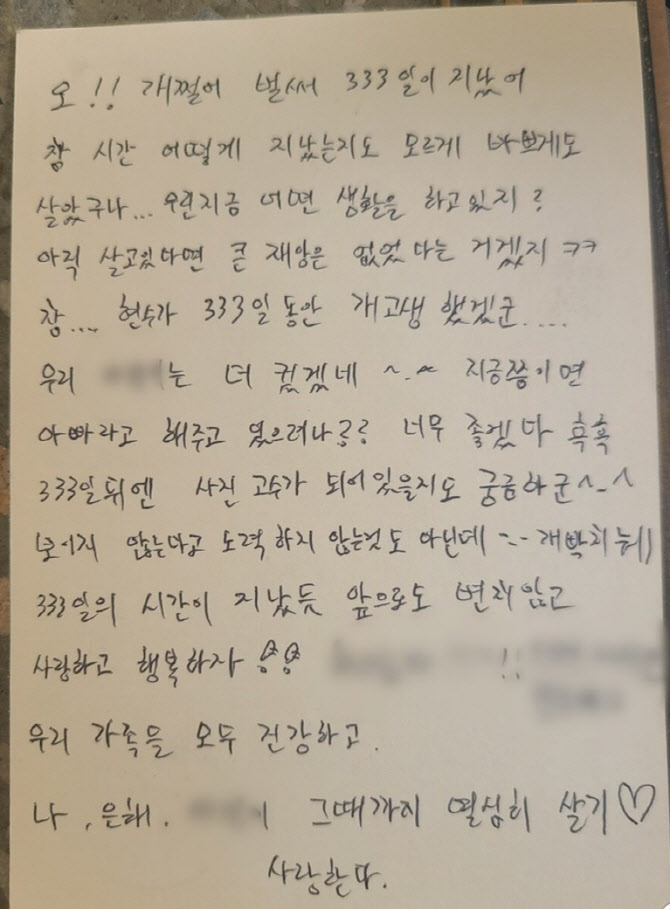 오!! 개쩔어 벌써 333일이 지났어
참 시간 어떻게 지났는지도 모르게 바쁘게도
살았구나... 우린지금 어떤 생활을 하고있지?
아직 살고있다면 큰 재앙은 없었다는 거겠지 ㅋㅋ
참.... 현수가 333일동안 개고생 했겠군.....
우리 는 더 컸겠네 ~.~ 지금쯤이면
아빠라고 해주고 있으려나?? 너무 좋겠다 흑흑
333일뒤엔 사진 고수가 되어있을지도 궁금하군^-^
보이지 않는다고 노력하지 않는것도 아닌데
333일의 시간이 지났듯 앞으로도 변라않고
사랑하고 행복하자
!!
우리 가족들 모두 건강하고.
나, 은해, 그때까지 열심히 살기♡
사랑한다.